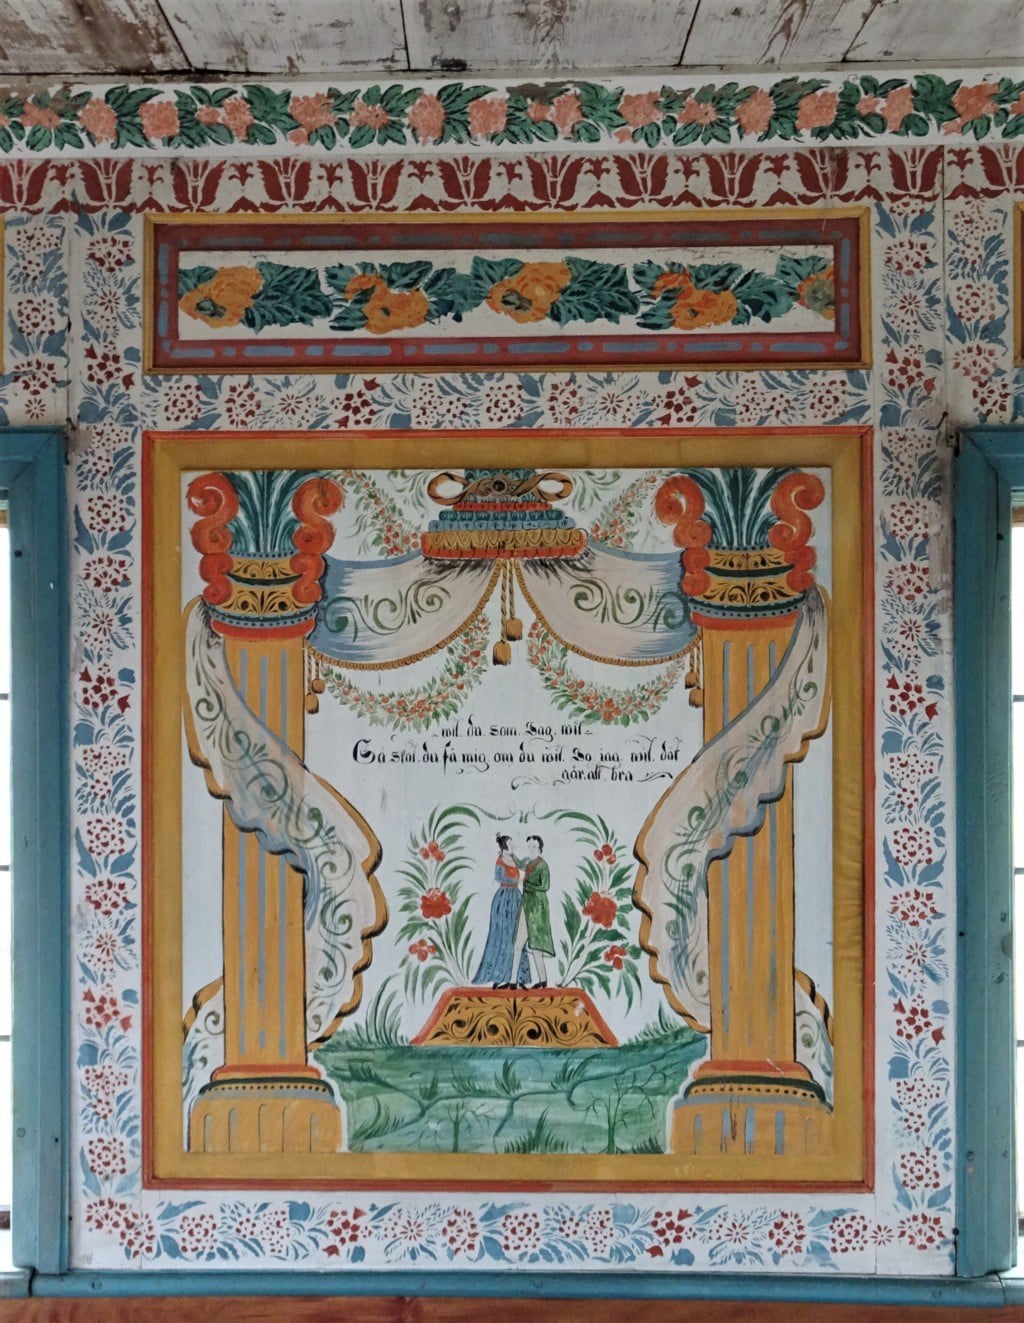 wil. du. som. Jag. wil
Så skal. du få mig om du wil. So. jag. wil. dät
går. alt. bra